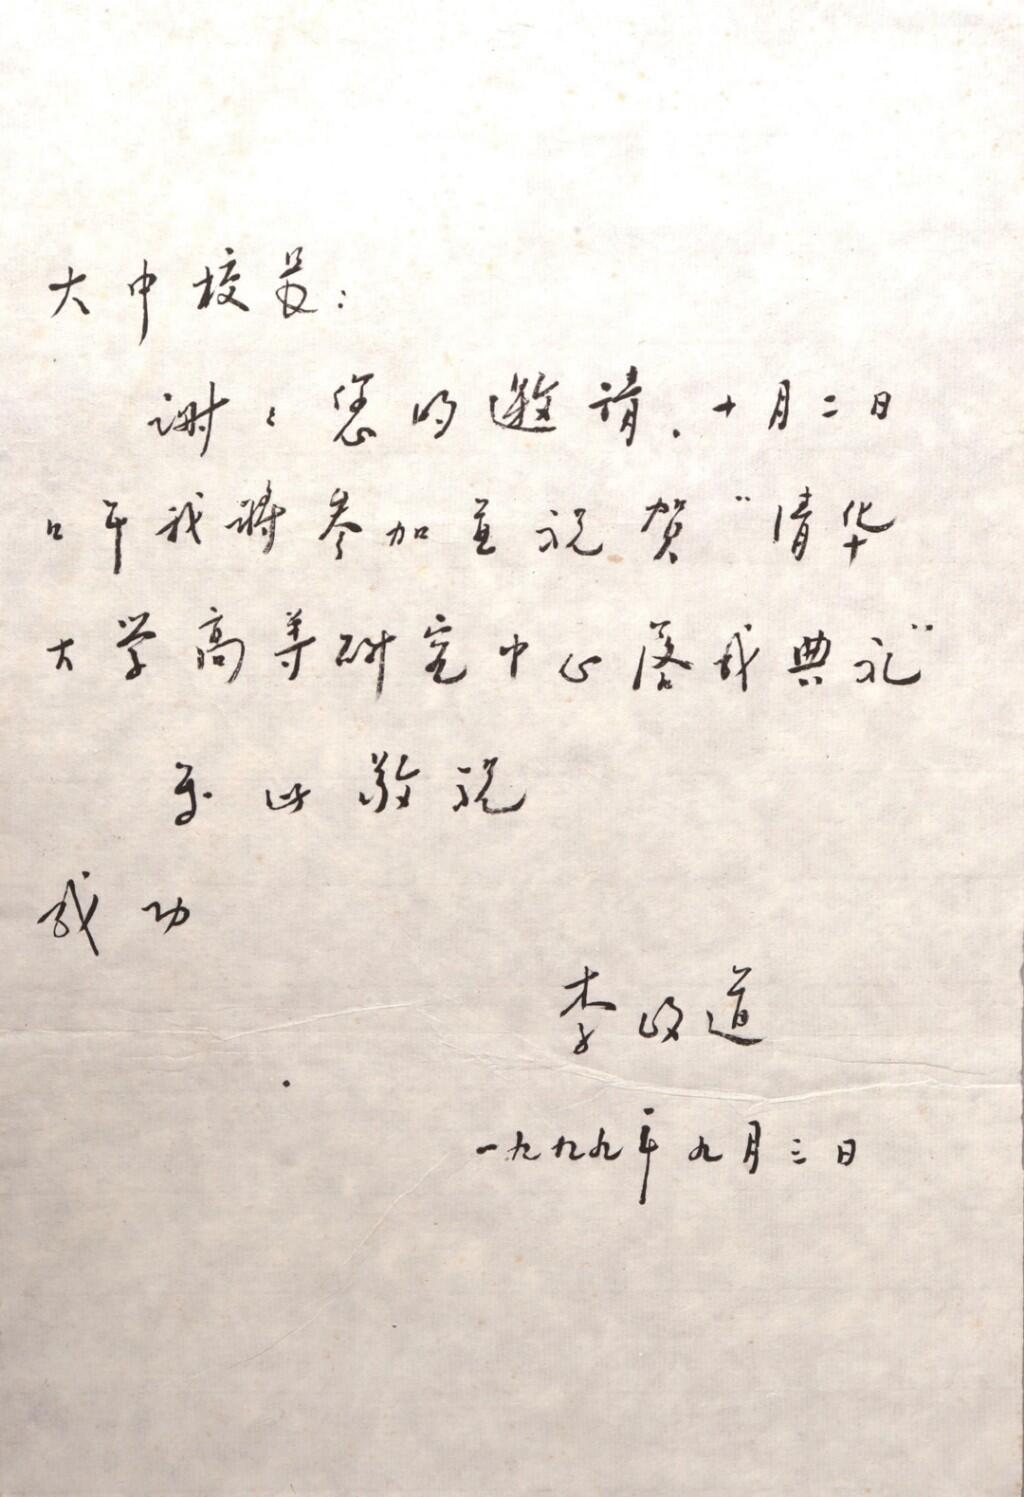 大中校长：
谢々您的邀请．十月二日
午我将参加並祝贺“清华
大学高等研究中心落成典礼”
此敬祝
成功
李政道
一九九九年九月三日